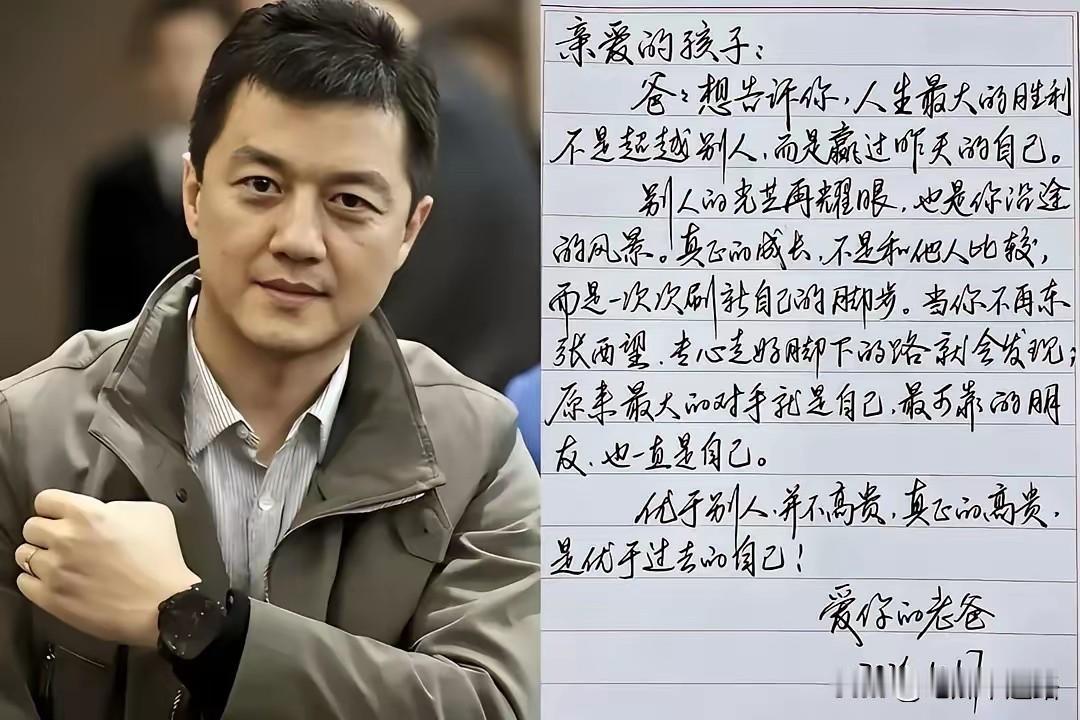 亲爱的孩子：
爸爸想告诉你，人生最大的胜利
不是超越别人，而是赢过昨天的自己。
别人的光芒再耀眼，也是你沿途
的风景。真正的成长，不是和他人比较，
而是一次次刷新自己的脚步。当你不再东
张西望、专心走好脚下的路就会发现；
原来最大的对手就是自己，最可靠的朋
友、也一直是自己。
优于别人，并不高贵，真正的高贵，
是优于过去的自己！
爱你的老爸